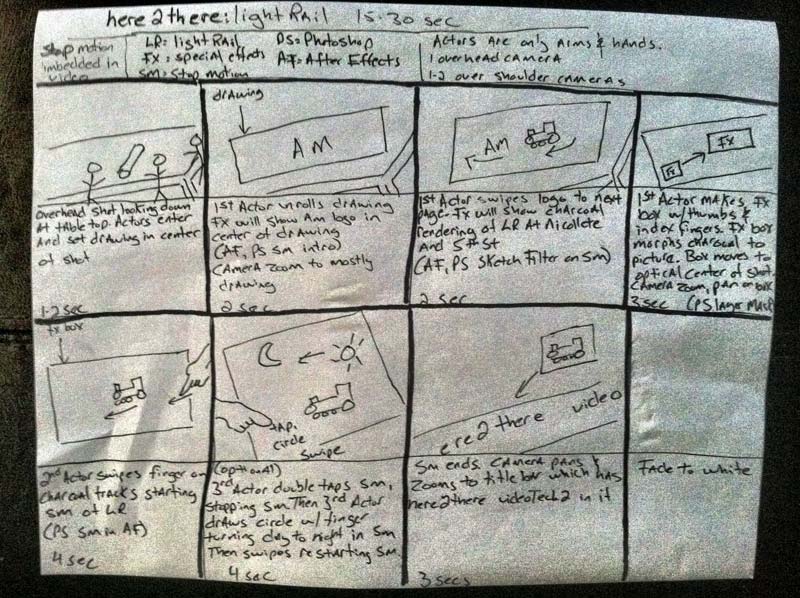 here2there: light Rail 15-30 sec
Stop motion
imbedded in
video
LR = light Rail
FX = special effects
SM = Stop motion
PS = Photoshop
AF = After Effects
Actors are only arms & hands.
1 overhead camera
1-2 over shoulder cameras
overhead shot looking down
At table top. Actors enter
And set drawing in center
of shot
1-2 sec
drawing
AM
1st Actor unrolls drawing
FX will show Am logo in
center of drawing
(AF, PS SM intro)
Camera zoom to mostly
drawing
2 sec
Am
1st Actor swipes logo to next
page. FX will show charcoal
rendering of LR At Nicollete
and 5th St
(AF, PS Sketch Filter on SM)
2 sec
FX
FX
1st Actor makes FX
box w/ thumbs &
index fingers. FX box
morphs charcoal to
picture. Box moves to
optical center of shot.
Camera zoom, pan on box
3 sec (PS layer Mask
fx box
2nd Actor swipes finger on
charcoal tracks starting
SM of LR
(PS SM in AF)
4 sec
tap,
circle
swipe
(optional)
3rd Actor double taps SM,
stopping SM. Then 3rd Actor
draws circle w/ finger
turning day to night in SM
Then swipes restarting SM.
4 sec
ere2there video
SM ends. Camera pans &
zooms to title bar which has
here2there videoTech2 in it
3 secs
Fade to white